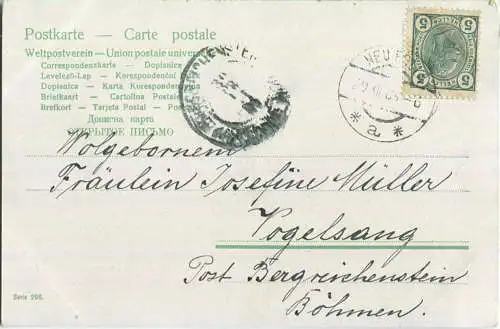 Postkarte — Carte postale
Weltpostverein — Union postale
Correspondenzkarte — Dopisnica
Levelező-Lap — Korespondenční
Dopisnica — Karta Korespondencyjna
Briefkaart — Cartolina Postale
Brefkort — Tarjeta Postal — Post
Дописна карта
ОТКРЫТОЕ ПИСЬМО
5 5
5 5
NEU
* a *
Wolgebornem
Fräulein Josefine Müller
Vogelsang
Post Bergreichenstein
Böhmen.